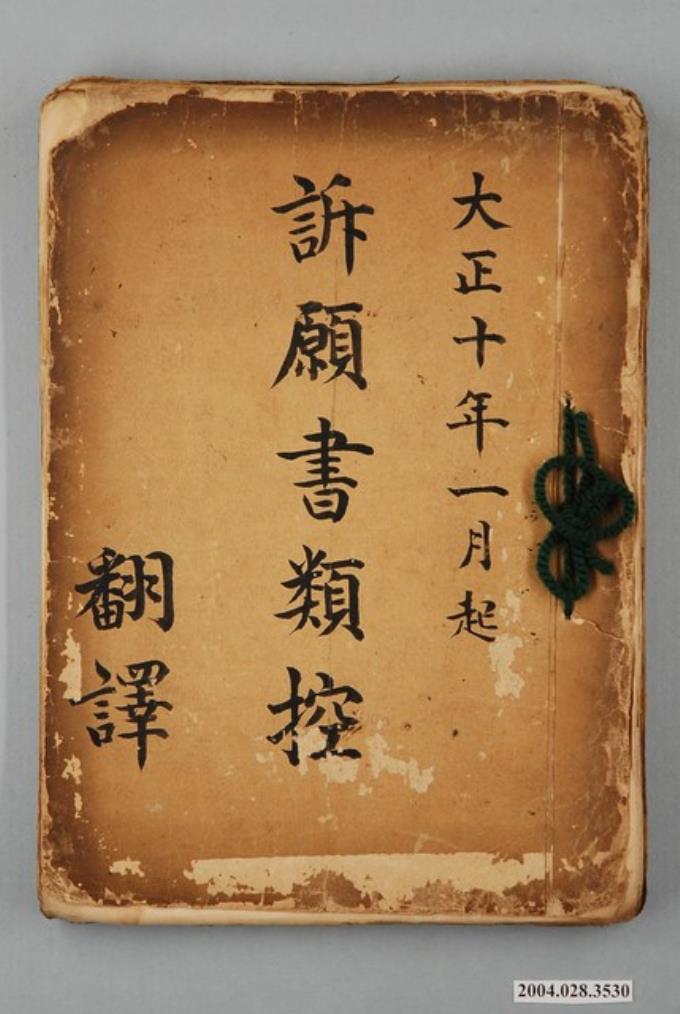 大正十年一月起
訴願書類控
翻譯
2004.028.3530